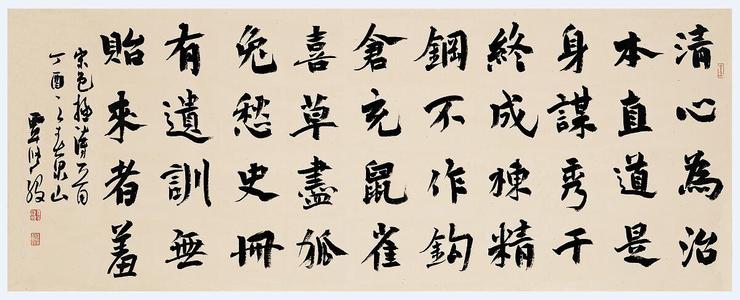 清心為治
本直道是
身謀秀干
終成棟精
鋼不作鉤
倉充鼠雀
喜草盡狐
兔愁史冊
有遺訓無
貽來者羞
宋包拯詩
丁酉